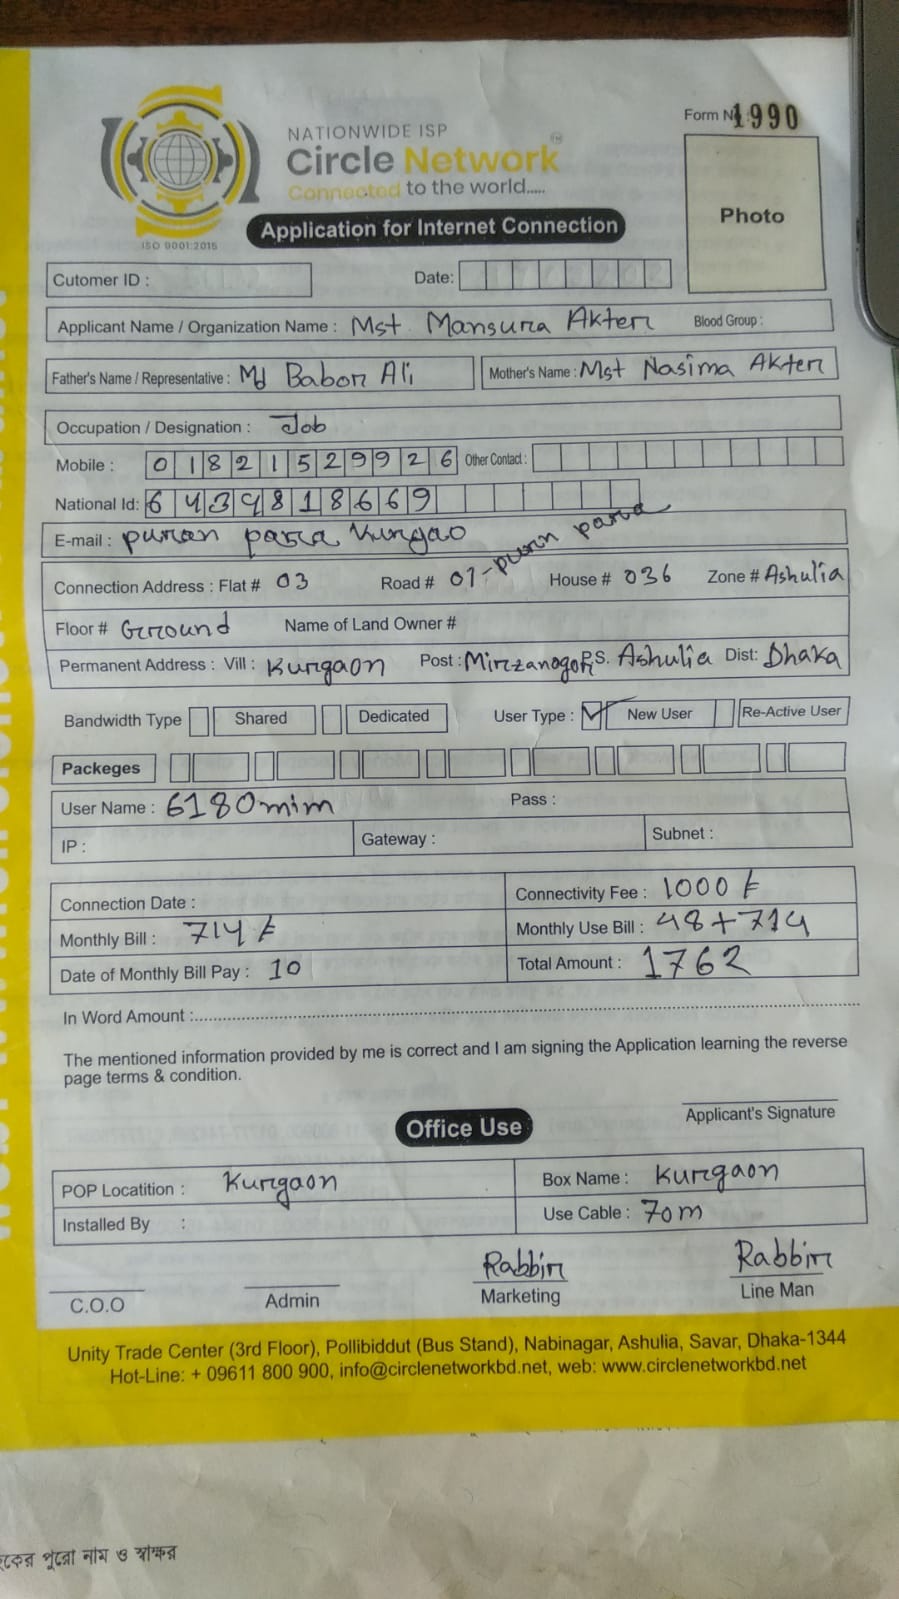 NATIONWIDE ISP
Circle Network
Connected to the world.....
ISO 9001:2015
Form N 1990
Photo
Application for Internet Connection
Cutomer ID :
Date:
Applicant Name / Organization Name : Mst Mansura Akter Blood Group :
Father's Name / Representative : Md Babor Ali Mother's Name : Mst Nasima Akter
Occupation / Designation : Job
Mobile : 01821529926 Other Contact :
National Id: 6439818669
E-mail : puran para Kurgao
Connection Address : Flat # 03 Road # 01-puran para House # 036 Zone # Ashulia
Floor # Ground Name of Land Owner #
Permanent Address : Vill : Kurgaon Post : Mirzanogor P.S. Ashulia Dist: Dhaka
Bandwidth Type Shared Dedicated User Type : New User Re-Active User
Packeges
User Name : 6180mim Pass :
IP : Gateway : Subnet :
Connection Date : Connectivity Fee : 1000 ৳
Monthly Bill : 714 ৳ Monthly Use Bill : 48+714
Date of Monthly Bill Pay : 10 Total Amount : 1762
In Word Amount :
The mentioned information provided by me is correct and I am signing the Application learning the reverse
page terms & condition.
Applicant's Signature
Office Use
POP Locatition : Kurgaon Box Name : Kurgaon
Installed By : Use Cable : 70m
Rabbir Rabbir
C.O.O Admin Marketing Line Man
Unity Trade Center (3rd Floor), Pollibiddut (Bus Stand), Nabinagar, Ashulia, Savar, Dhaka-1344
Hot-Line: + 09611 800 900, info@circlenetworkbd.net, web: www.circlenetworkbd.net
পুরো নাম ও স্বাক্ষর